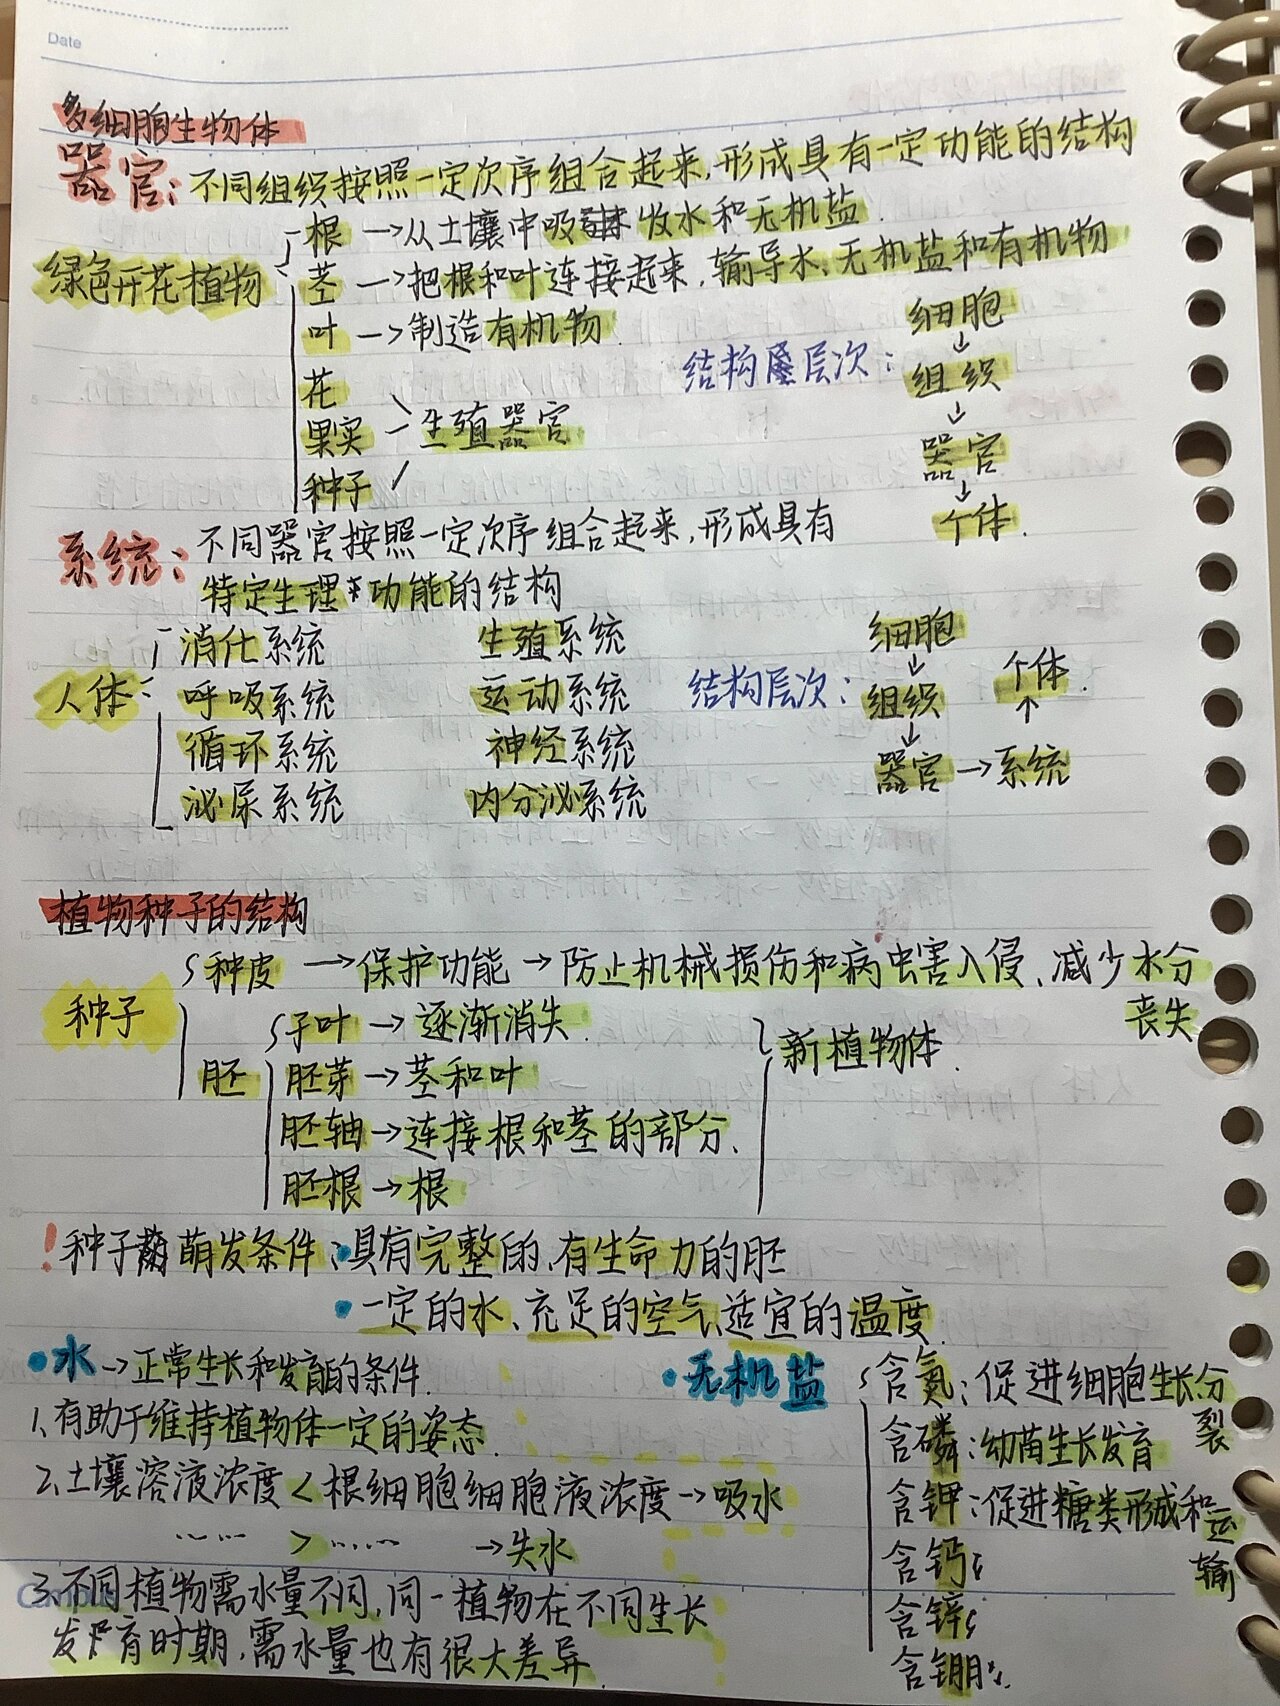 Date
多细胞生物体
器官：不同组织按照一定次序组合起来，形成具有一定功能的结构
绿色开花植物
根→从土壤中吸收水和无机盐
茎→把根和叶连接起来，输导水、无机盐和有机物
叶→制造有机物
花
果实 生殖器官
种子
结构层次：
细胞
↓
组织
↓
器官
↓
个体.
系统：不同器官按照一定次序组合起来，形成具有
特定生理功能的结构
人体
消化系统 生殖系统
呼吸系统 运动系统
循环系统 神经系统
泌尿系统 内分泌系统
结构层次：
细胞
↓
组织 个体.
↓ ↑
器官→系统
植物种子的结构
种子
种皮→保护功能→防止机械损伤和病虫害入侵、减少水分
丧失
胚
子叶→逐渐消失.
胚芽→茎和叶
胚轴→连接根和茎的部分、
胚根→根
新植物体.
！种子萌发条件：•具有完整的、有生命力的胚
•一定的水、充足的空气、适宜的温度.
•水→正常生长和发育的条件.
1、有助于维持植物体一定的姿态.
2、土壤溶液浓度<根细胞细胞液浓度→吸水
…… >…… →失水
3、不同植物需水量不同，同一植物在不同生长
发育时期，需水量也有很大差异.
•无机盐
含氮：促进细胞生长分
裂
含磷：幼苗生长发育
含钾：促进糖类形成和运
输
含钙：
含锌：
含硼：